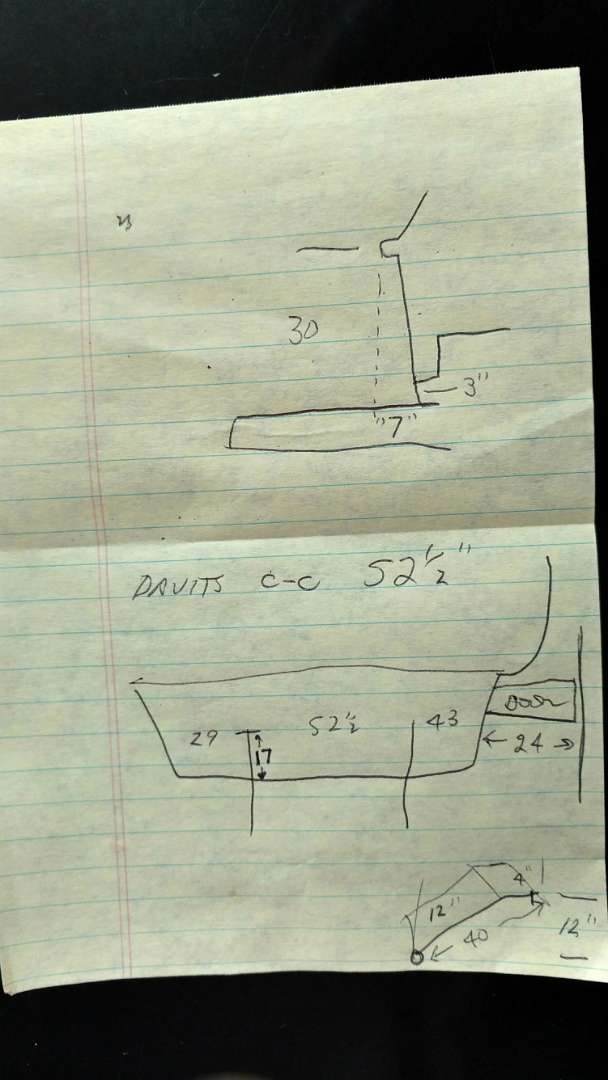 30
3"
"7"
DAVITS C-C 52 1/2"
Door
29 52 1/2 43
17
24
4"
12"
40
12"